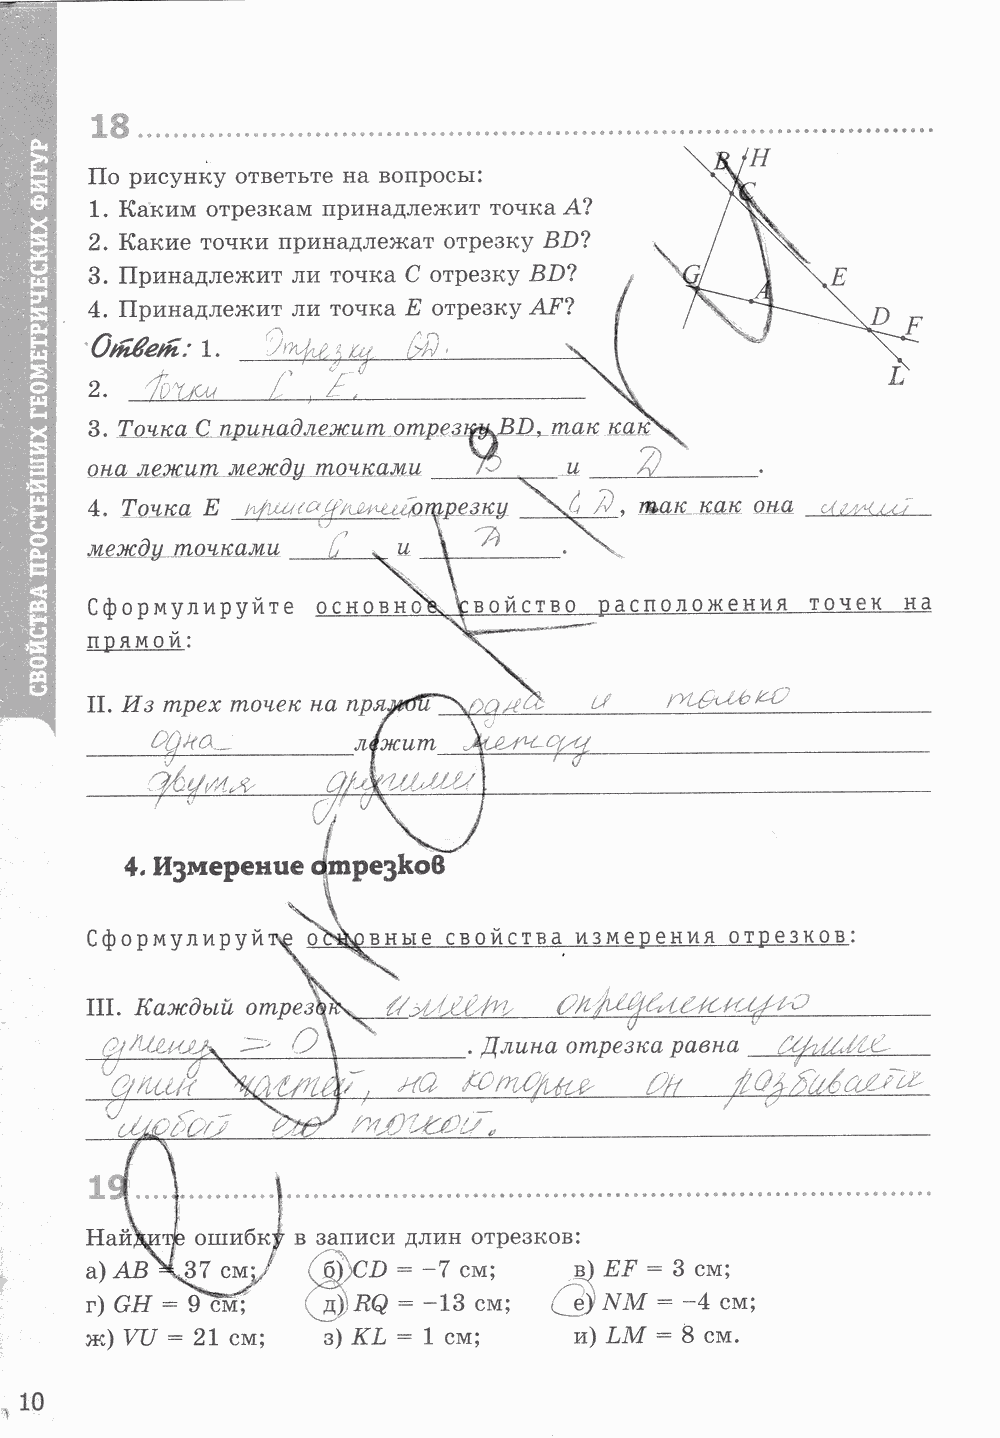 СВОЙСТВА ПРОСТЕЙШИХ ГЕОМЕТРИЧЕСКИХ ФИГУР
18
По рисунку ответьте на вопросы:
1. Каким отрезкам принадлежит точка A?
2. Какие точки принадлежат отрезку BD?
3. Принадлежит ли точка C отрезку BD?
4. Принадлежит ли точка E отрезку AF?
B H
C
G
A
E
D F
L
Ответ: 1. Отрезку GD.
2. Точки C, E.
3. Точка C принадлежит отрезку BD, так как
она лежит между точками B и D.
4. Точка E принадлежит отрезку CD, так как она лежит
между точками C и D.
Сформулируйте основное свойство расположения точек на
прямой:
II. Из трех точек на прямой одна и только
одна лежит между
двумя другими
4. Измерение отрезков
Сформулируйте основные свойства измерения отрезков:
III. Каждый отрезок имеет определенную
длину > 0. Длина отрезка равна сумме
длин частей, на которые он разбивается
любой его точкой.
19
Найдите ошибку в записи длин отрезков:
а) AB = 37 см; б) CD = −7 см; в) EF = 3 см;
г) GH = 9 см; д) RQ = −13 см; е) NM = −4 см;
ж) VU = 21 см; з) KL = 1 см; и) LM = 8 см.
10